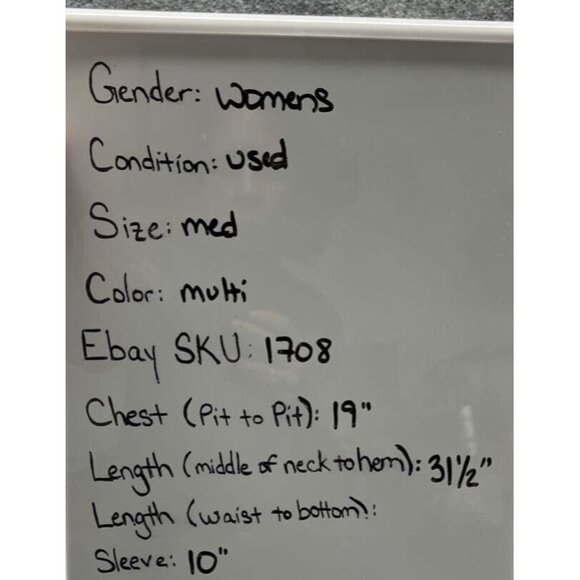 Gender: womens
Condition: used
Size: med
Color: multi
Ebay SKU: 1708
Chest (Pit to Pit): 19"
Length (middle of neck to hem): 31 1/2"
Length (waist to bottom):
Sleeve: 10"